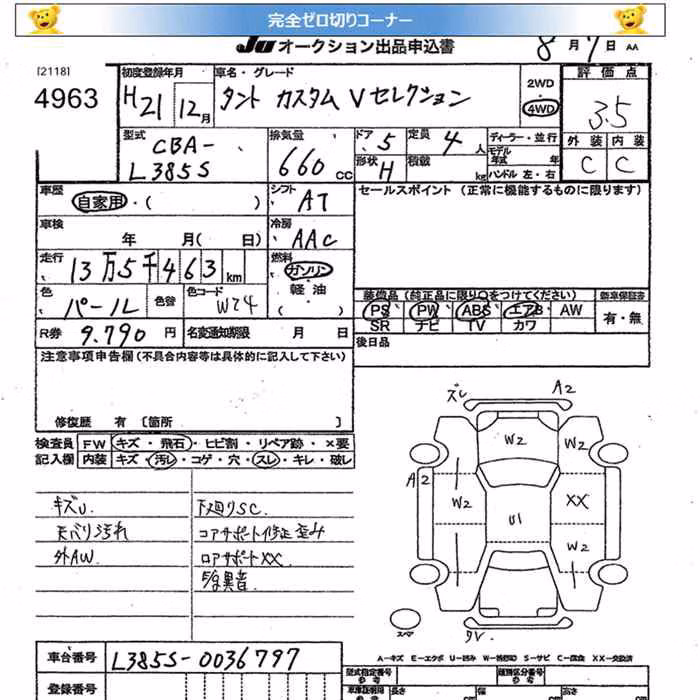 完全ゼロ切りコーナー
JU オークション出品申込書 8月7日 AA
[2118]
4963
初度登録年月 H21 12月
車名・グレード タント カスタム Vセレクション
2WD 4WD
評価点 3.5
外装 内装
C C
型式 CBA-L385S
排気量 660 CC
ドア 5
定員 4人
形状 H
積載 kg
ディーラー・並行
モデル年式 年
ハンドル 左・右
車歴 自家用・( )
シフト AT
セールスポイント (正常に機能するものに限ります)
車検 年 月( 日)
冷房 AAC
走行 13万5千463km
燃料 ガソリン・軽油 ( )
色 パール 色替
色コード W24
装備品 (純正品に限り○をつけてください) 新車保証書
PS PW ABS エアB AW 有・無
SR ナビ TV カワ
R券 9.790円 名変通知期限 月 日
後日品
注意事項申告欄 (不具合内容等は具体的に記入して下さい)
修復歴 有 〔箇所 〕
検査員記入欄
FW キズ・飛石・ヒビ割・リペア跡・×要
内装 キズ・汚レ・コゲ・穴・スレ・キレ・破レ
キズU. 下廻りSC.
天バリ汚れ コアサポート修正 歪み
外AW. ロアサポートXX
異音
ズレ A2
W2 W2
A2 W2 U1 XX
W2
スペア
車台番号 L385S-0036797
A-キズ E-エクボ U-凹み S-サビ C-腐食 XX-交換済
登録番号
型式指定番号 類別区分番号
長さ 幅 高さ